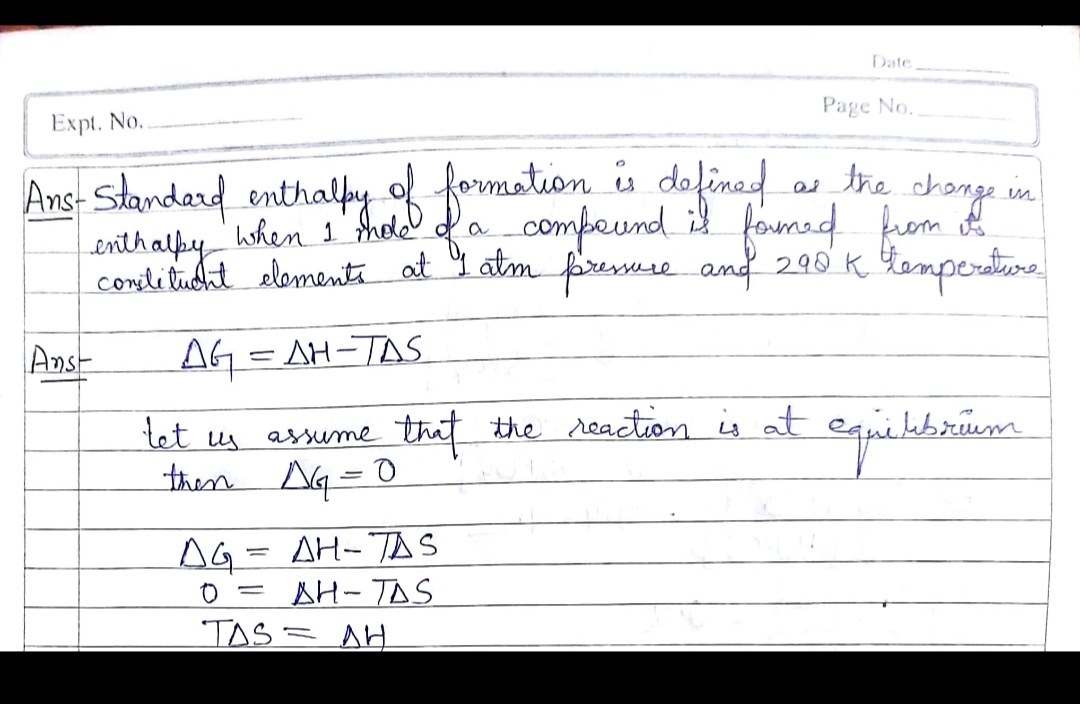 Date
Expt. No.
Page No.
Ans- Standard enthalpy of formation is defined as the change in
enthalpy when 1 mole of a compound is formed from its
constituent elements at 1 atm pressure and 298 K temperature
Ans- ΔG = ΔH-TΔS
Let us assume that the reaction is at equilibrium
then ΔG = 0
ΔG = ΔH- TΔS
0 = ΔH- TΔS
TΔS = ΔH